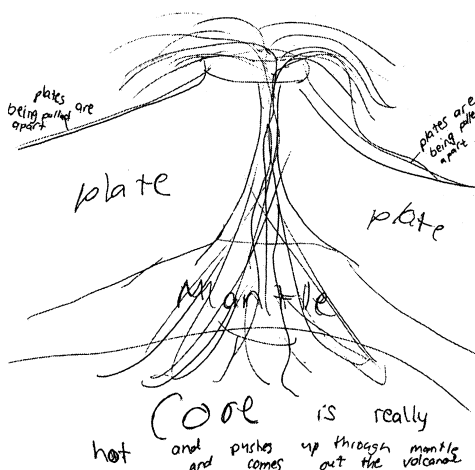 plates
being pulled are
apart
plates are
being pulled
apart
plate
plate
Mantle
Core is really
hot and pushes up through mantle
and comes out the volcanoe